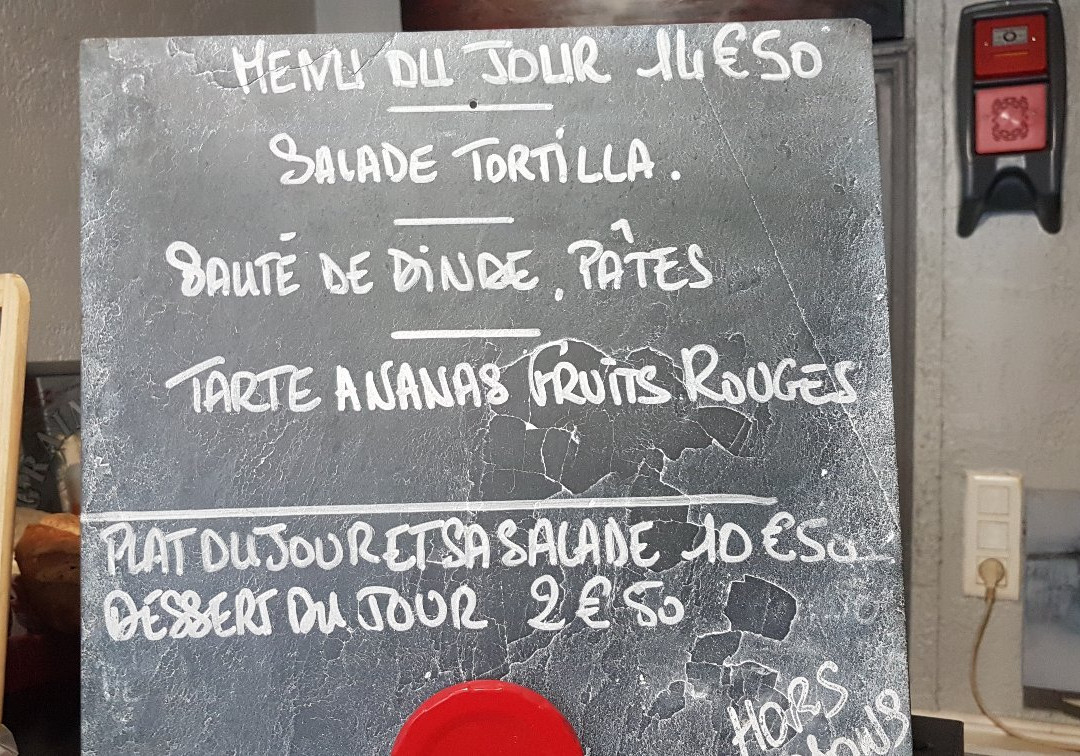 MENU DU JOUR 14€50
SALADE TORTILLA.
SAUTÉ DE DINDE. PÂTES
TARTE ANANAS FRUITS ROUGES
PLAT DU JOUR ET SA SALADE 10€50
DESSERT DU JOUR 2€50
HORS